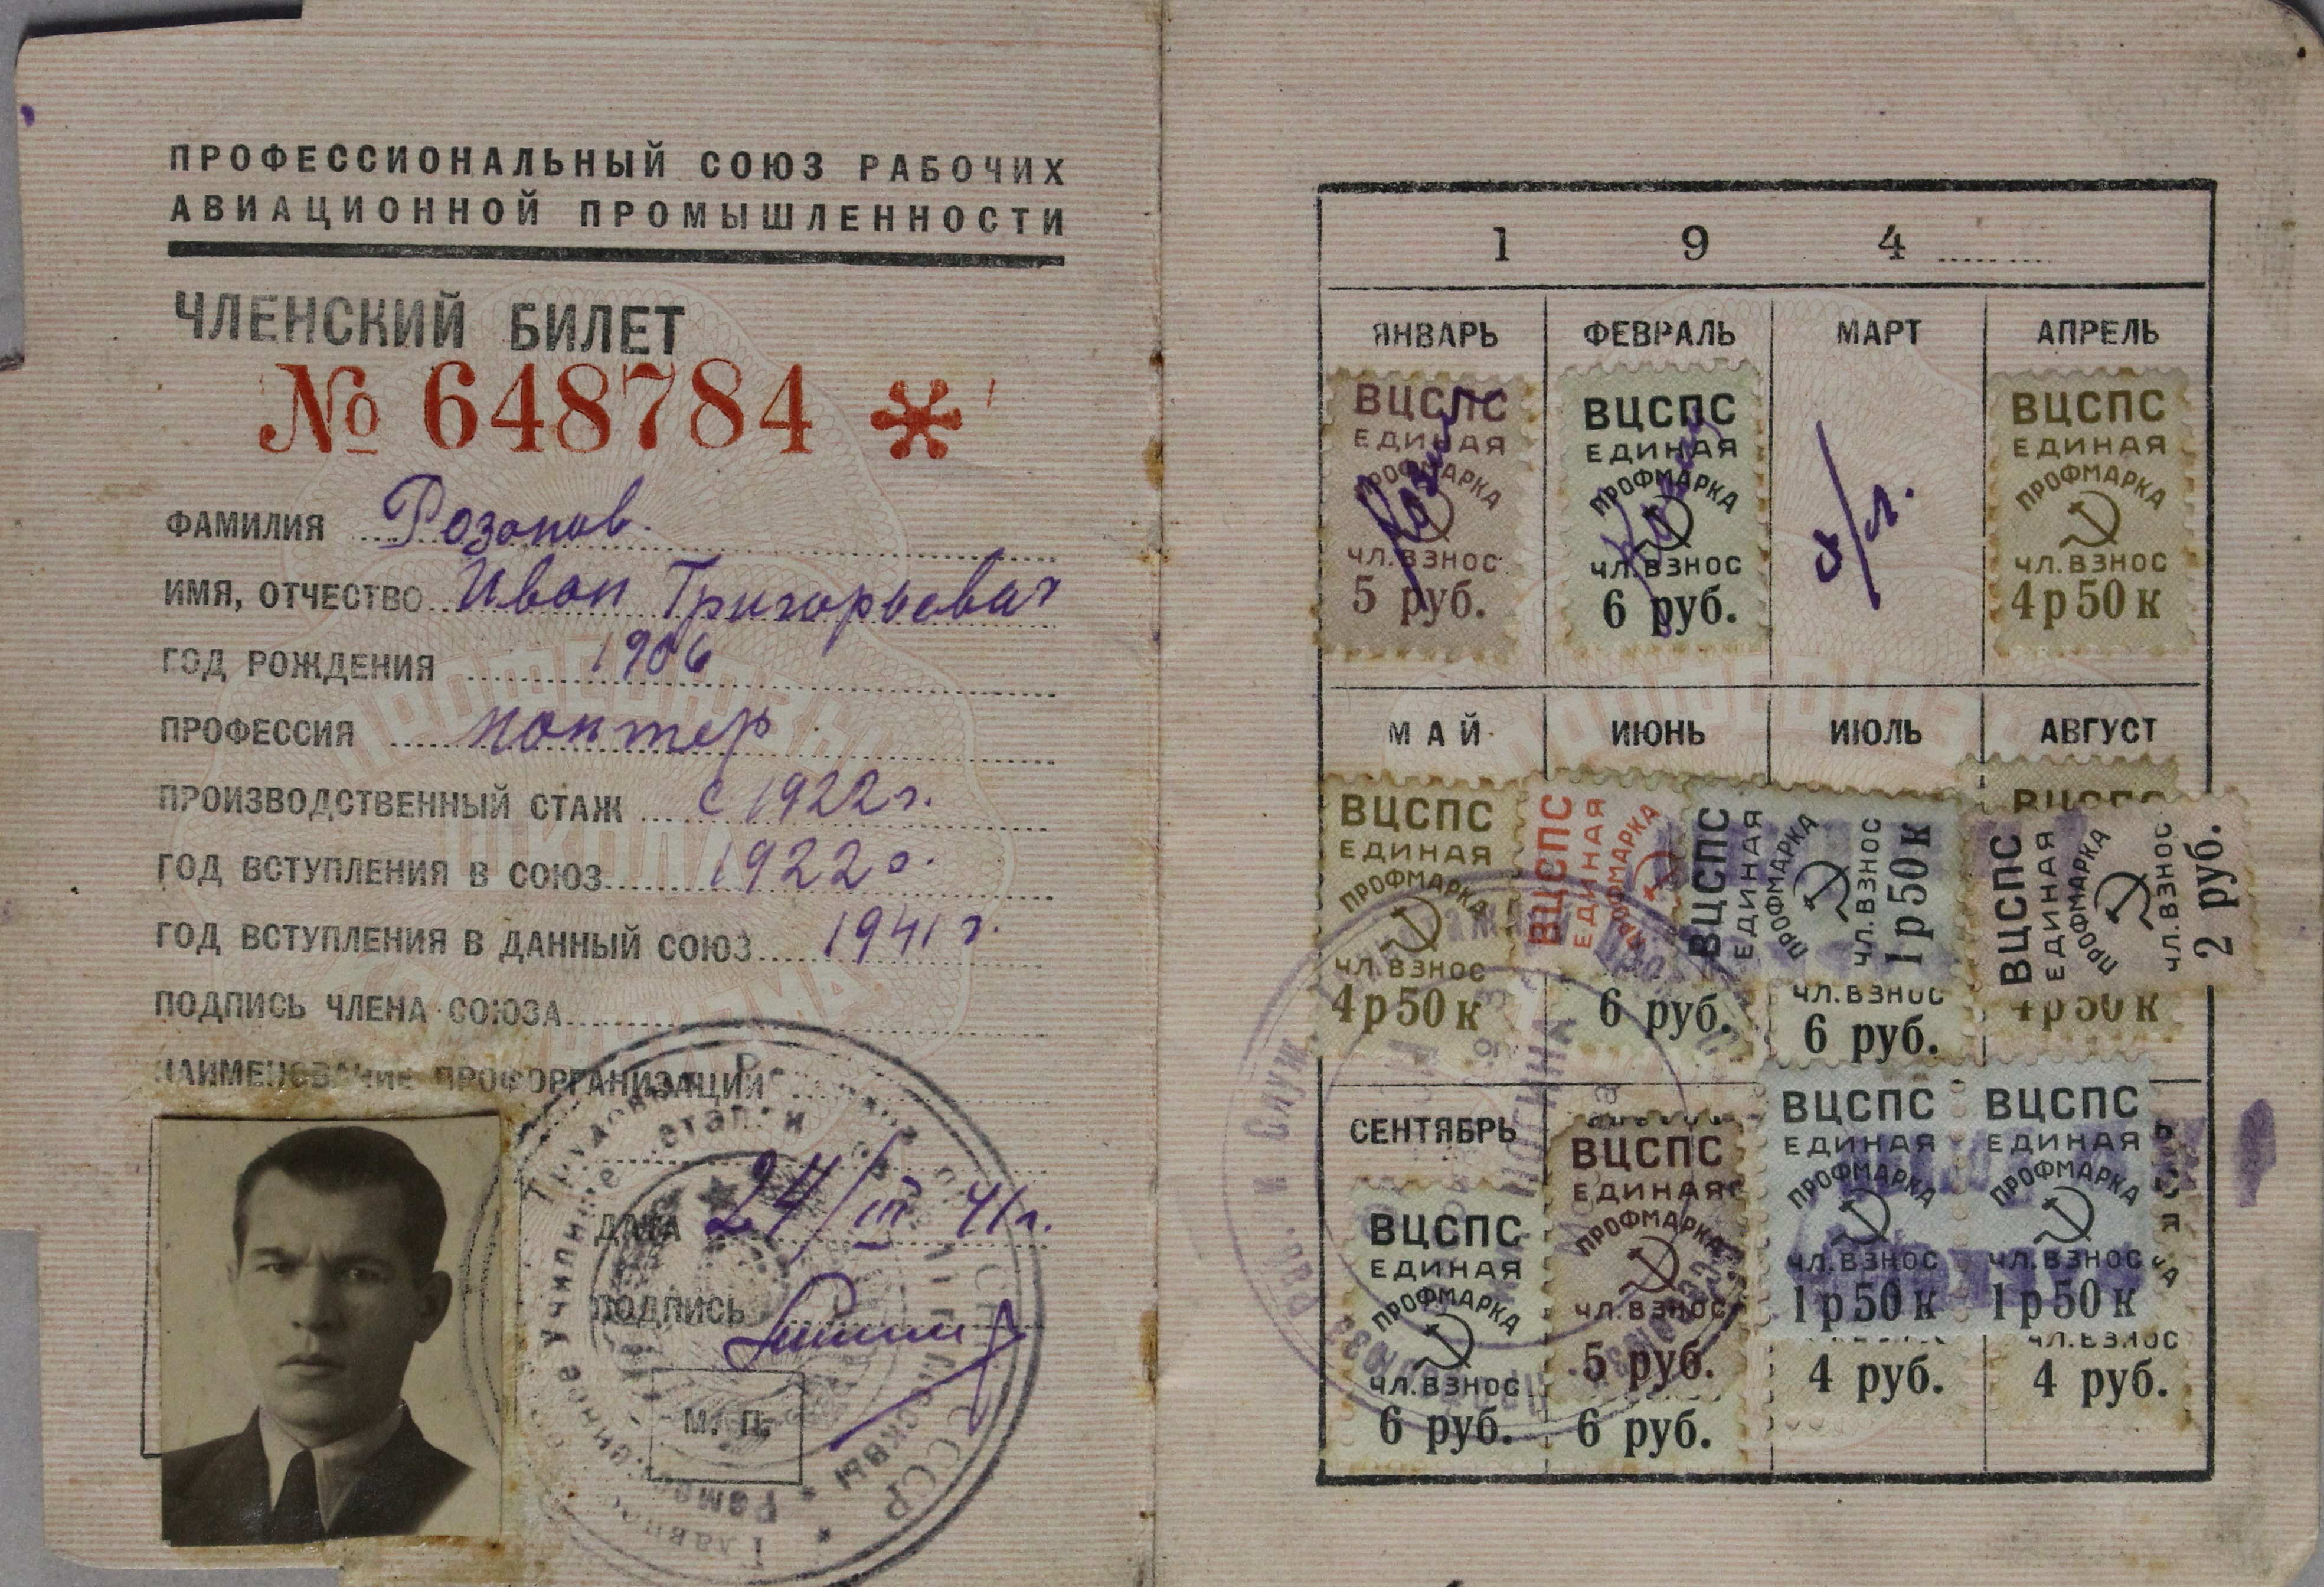 ПРОФЕССИОНАЛЬНЫЙ СОЮЗ РАБОЧИХ
АВИАЦИОННОЙ ПРОМЫШЛЕННОСТИ
ЧЛЕНСКИЙ БИЛЕТ
№ 648784 *
ФАМИЛИЯ Розанов.
ИМЯ, ОТЧЕСТВО Иван Григорьевич
ГОД РОЖДЕНИЯ 1906
ПРОФЕССИЯ монтер
ПРОИЗВОДСТВЕННЫЙ СТАЖ с 1922 г.
ГОД ВСТУПЛЕНИЯ В СОЮЗ 1922 г.
ГОД ВСТУПЛЕНИЯ В ДАННЫЙ СОЮЗ 1941 г.
ПОДПИСЬ ЧЛЕНА СОЮЗА
НАИМЕНОВАНИЕ ПРОФОРГАНИЗАЦИИ
ДАТА 24/III 41 г.
ПОДПИСЬ
М. П.
194
ЯНВАРЬ ФЕВРАЛЬ МАРТ АПРЕЛЬ
ВЦСПС ВЦСПС ВЦСПС
ЕДИНАЯ ЕДИНАЯ ЕДИНАЯ
ПРОФМАРКА ПРОФМАРКА ПРОФМАРКА
ЧЛ. ВЗНОС ЧЛ. ВЗНОС ЧЛ. ВЗНОС
5 руб. 6 руб. 4 р 50 к
МАЙ ИЮНЬ ИЮЛЬ АВГУСТ
ВЦСПС ВЦСПС ВЦСПС ВЦСПС ВЦСПС
ЕДИНАЯ ЕДИНАЯ ЕДИНАЯ ЕДИНАЯ
ПРОФМАРКА ПРОФМАРКА ПРОФМАРКА ПРОФМАРКА
ЧЛ. ВЗНОС ЧЛ. ВЗНОС ЧЛ. ВЗНОС
1 р 50 к 2 руб.
ЧЛ. ВЗНОС
4 р 50 к 6 руб. 6 руб. 4 р 50 к
СЕНТЯБРЬ
ВЦСПС ВЦСПС ВЦСПС ВЦСПС
ЕДИНАЯ ЕДИНАЯ ЕДИНАЯ ЕДИНАЯ
ПРОФМАРКА ПРОФМАРКА ПРОФМАРКА ПРОФМАРКА
ЧЛ. ВЗНОС ЧЛ. ВЗНОС ЧЛ. ВЗНОС ЧЛ. ВЗНОС
5 руб. 1 р 50 к 1 р 50 к
ЧЛ. ВЗНОС
6 руб. 6 руб. 4 руб. 4 руб.